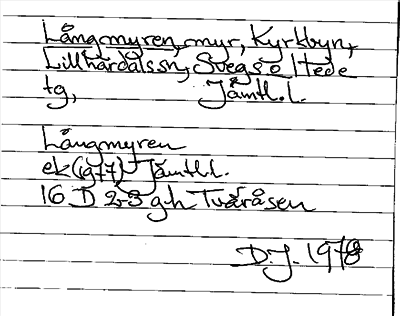 Långmyren, myr, Kyrkbyn,
Lillhärdalssn, Svegs o Hede
tg, Jämtl.l.
Långmyren
ek (1977) Jämtl.l.
16 D 2-3 g-h Tvåråsen
D.J. 1978